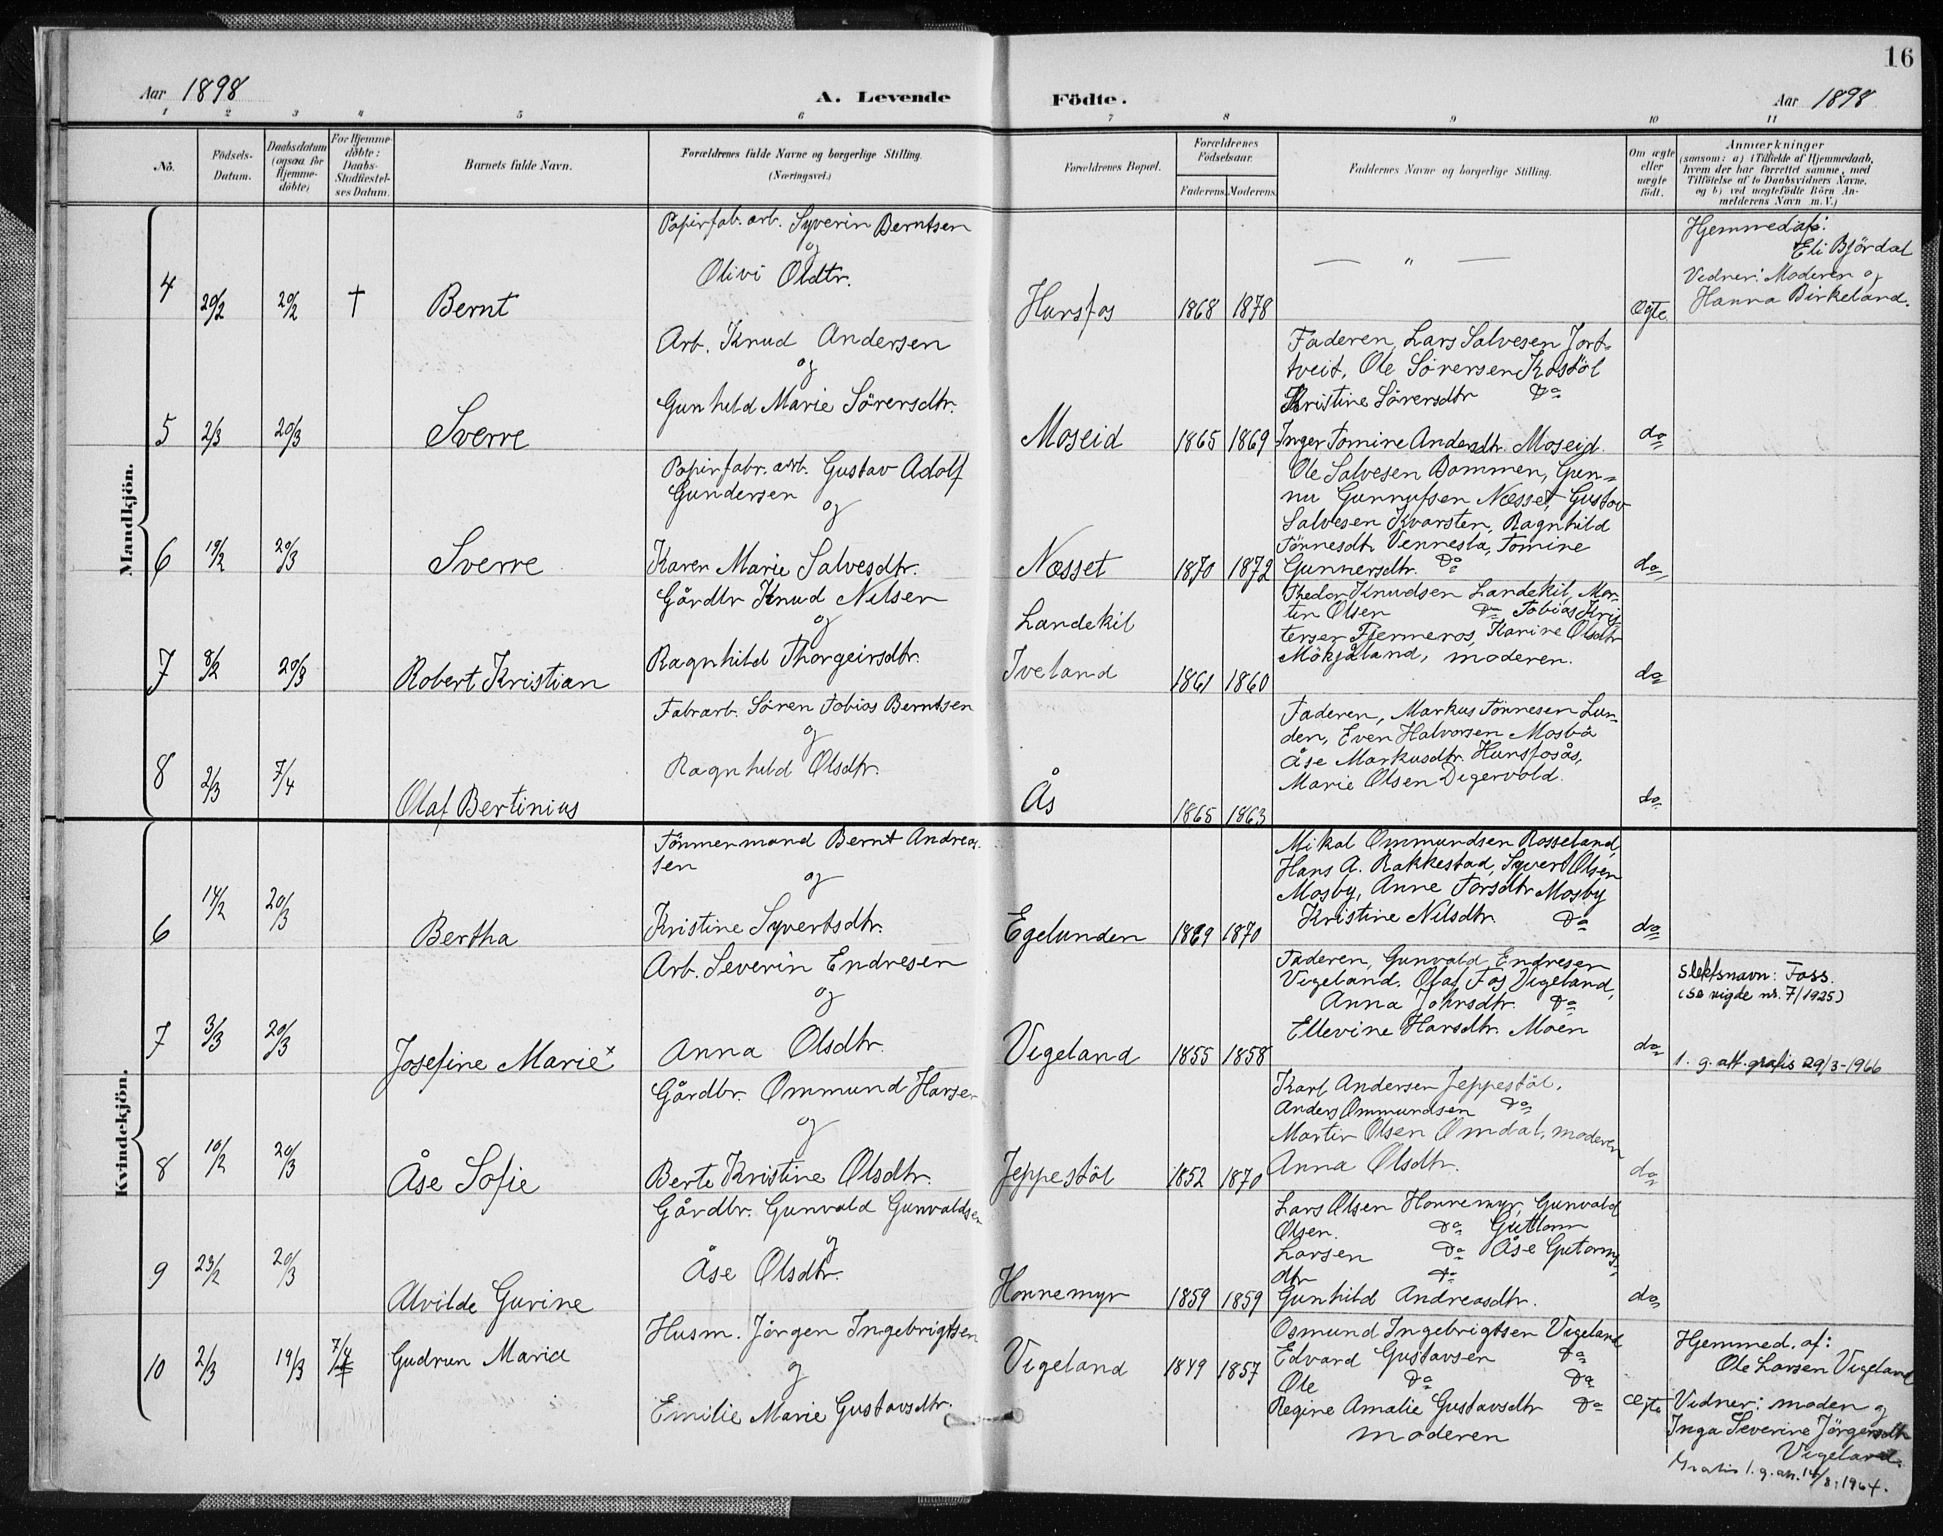 16
Aar 1898
A. Levende
Födte.
Aar 1898
1 2 3 4 5 6 7 8 9 10 11
No.
Födsels-
Datum.
Daabsdatum
(ogsaa for
Hjemme-
döbte)
For Hjemme-
döbte:
Daabs-
Stadfæstel-
ses Datum.
Barnets fulde Navn.
Forældrenes fulde Navne og borgerlige Stilling.
(Næringsvei.)
Forældrenes Bopæl.
Forældrenes
Födselsaar.
Faderens. Moderens.
Faddernes Navne og borgerlige Stilling.
Om ægte
eller
uægte
födt.
Anmærkninger
(saasom: a) i Tilfælde af Hjemmedaab,
hvem der har forrettet samme, med
Tilföielse af to Daabsvidners Navne,
og b) ved uægtefödte Börn An-
melderens Navn m. V.)
Mandkjön.
4 20/2 20/2 † Bernt
Papirfab. arb. Syverin Berntsen
og
Olivi Olsdtr.
Hunsfos 1868 1878
— " —
Ægte.
Hjemmedöbt af:
Eli Björdal
Vidner: Moderen og
Hanna Birkeland.
5 2/3 20/3 Sverre
Arb. Knud Andersen
og
Gunhild Marie Sörensdtr.
Moseid 1865 1869
Faderen, Lars Salvesen Jort-
tveit, Ole Sörensen Kostöl
Kristine Sörensdtr Do
Inger Tomine Andersdtr. Moseid.
do
6 19/2 20/3 Sverre
Papirfabr. arb. Gustav Adolf
Gundersen
og
Karen Marie Salvesdtr.
Næsset 1870 1872
Ole Salvesen Dommen, Gun-
nu Gunnufsen Næsset, Gustav
Salvesen Kvarsten, Ragnhild
Tönnesdtr Vennesla, Tomine
Gunnersdtr. Do
do
7 8/2 20/3 Robert Kristian
Gårdbr Knud Nilsen
og
Ragnhild Thorgeirsdtr.
Landekil
Iveland 1861 1860
Thedor Knudsen Landekil, Mor-
ten Olsen Do Tobias Kris-
tensen Fjermeros, Karine Olsdtr
Mökjåland, moderen.
do
8 2/3 7/4 Olaf Bertinius
Fabrarb. Sören Tobias Berntsen
og
Ragnhild Olsdtr.
Ås 1865 1863
Faderen, Markus Tönnesen Lun-
den, Even Halvorsen Mosbö
Åse Markusdtr. Hunsfosås,
Marie Olsen Digervold.
do
Kvindekjön.
6 14/2 20/3 Bertha
Tömmermand Bernt Andreas-
sen
og
Kristine Syvertsdtr.
Egelunden 1869 1870
Mikal Ommundsen Rosseland,
Hans A. Rakkestad, Syvert Olsen
Mosby, Anne Torsdtr Mosby
Kristine Nilsdtr. Do
do
7 3/3 20/3 Josefine Marie x
Arb. Severin Endresen
og
Anna Olsdtr.
Vigeland 1855 1858
Faderen, Gunvald Endresen
Vigeland, Olaf Fos Vigeland,
Anna Johnsdtr. Do
Ellevine Hansdtr. Moen
do
Slektsnavn: Foss.
(se vigde nr. 7/1925)
1. g. att. gratis 29/3-1966
8 10/2 20/3 Åse Sofie
Gårdbr. Ommund Hansen
og
Berte Kristine Olsdtr.
Jeppestöl 1852 1870
Karl Andersen Jeppestöl,
Anders Ommundsen Do
Martin Olsen Omdal, moderen
Anna Olsdtr.
do
9 23/2 20/3 Alvilde Gurine
Gårdbr. Gunvald Gunvaldsen
og
Åse Olsdtr.
Honnemyr 1859 1859
Lars Olsen Honnemyr, Gunvald
Olsen. Do Guttorm
Larsen Do Åse Gutorms-
dtr Do
Gunhild Andreasdtr.
do
10 2/3 19/3 7/4 Gudrun Maria
Husm. Jörgen Ingebrigtsen
og
Emilie Marie Gustavsdtr.
Vigeland 1849 1857
Osmund Ingebrigtsen Vigeland
Edvard Gustavsen Do
Ole Do Do
Regine Amalie Gustavsdtr Do
moderen
Ægte
Hjemmed. af:
Ole Larsen Vigeland
Vidner: moden og
Inga Severine Jörgensdtr
Vigeland.
Gratis 1. g. att. 14/8.1964.